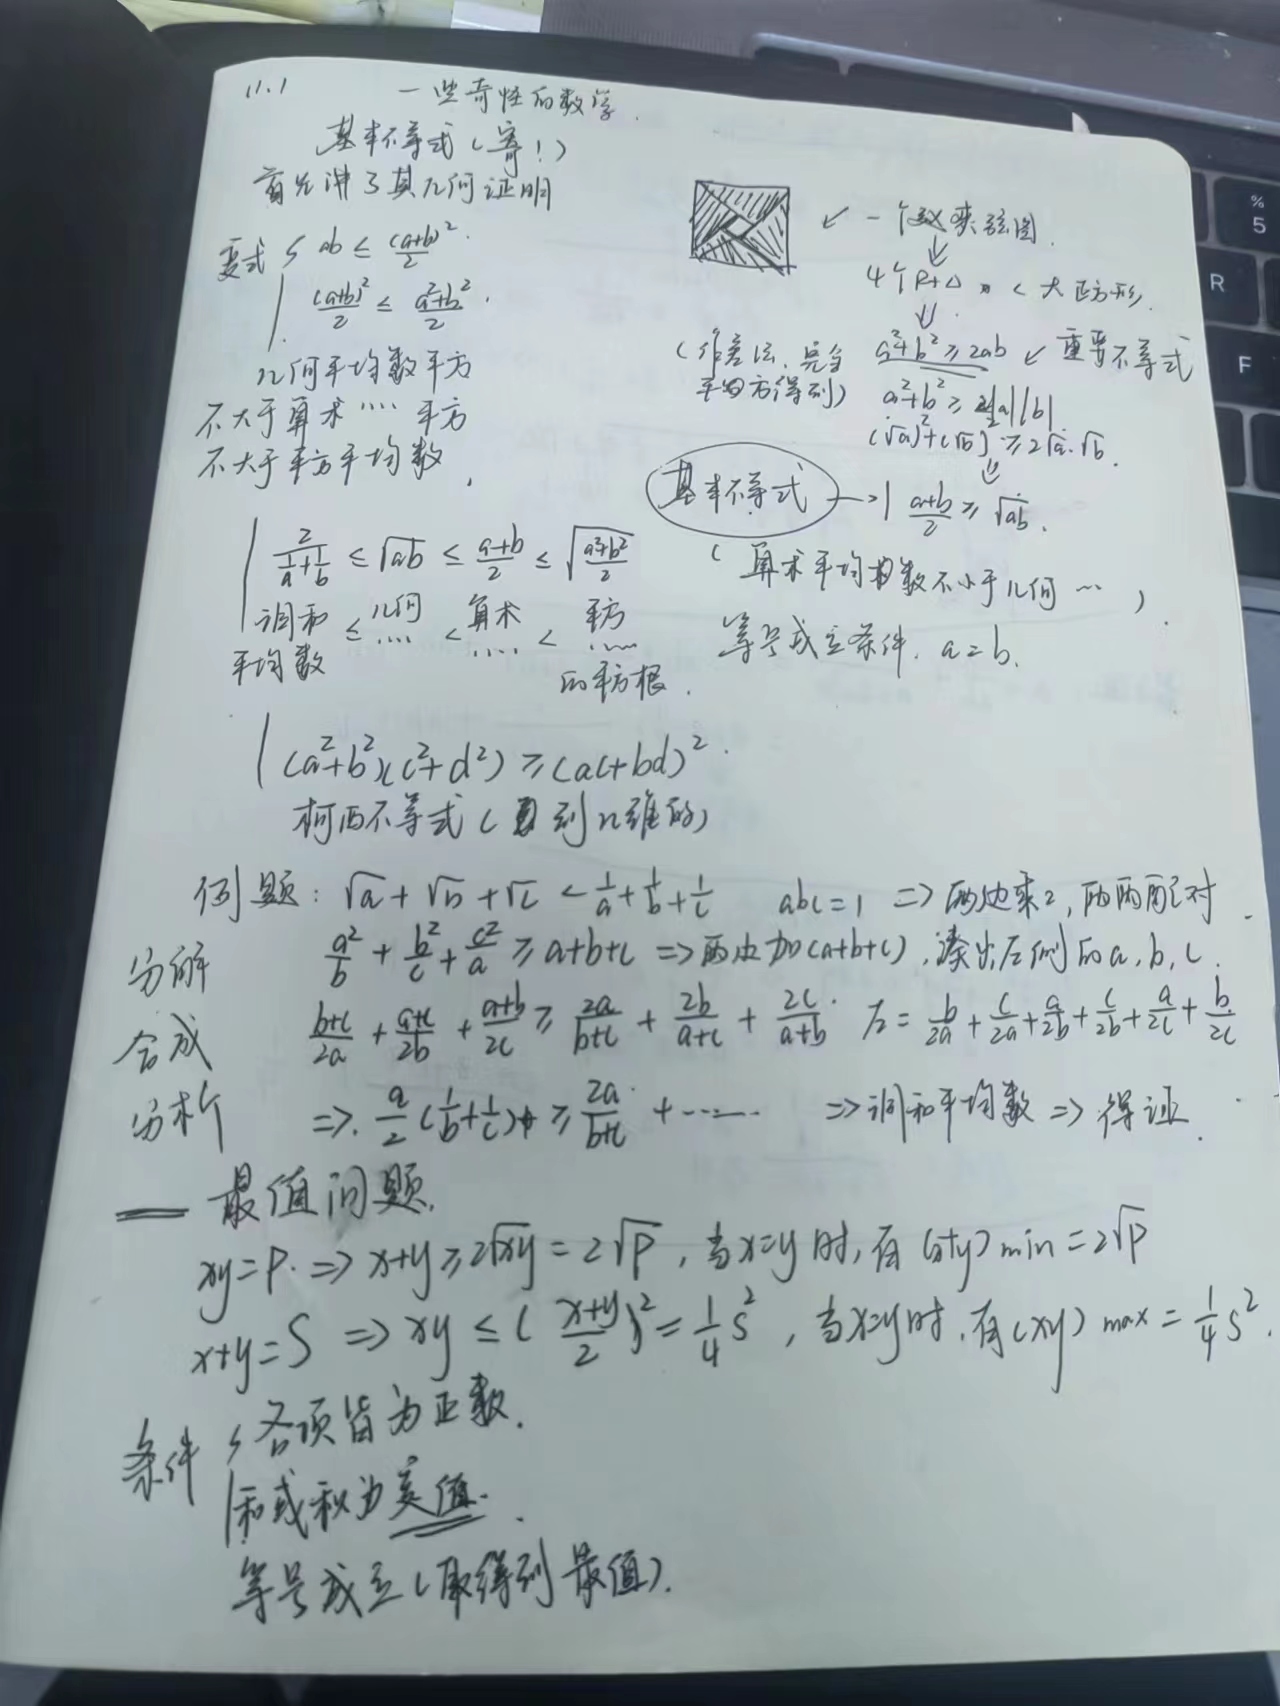 11.1 一些奇怪的数学.
基本不等式(寄!)
首先讲了其几何证明
变式 ab ≤ (a+b)²/2.
(a+b)²/2 ≤ a²+b²/2.
几何平均数平方
不大于算术 …… 平方
不大于平方平均数,
↙ 一个赵爽弦图.
4个Rt△ < 大正方形.
(作差法, 完全平均方得到) a²+b² ≥ 2ab ↙ 重要不等式
a²+b² ≥ 2|a||b|
(√a)²+(√b)² ≥ 2√a·√b.
基本不等式 → | a+b/2 ≥ √ab.
( 算术平均数不小于几何 … )
等号成立条件. a=b.
2/(1/a+1/b) ≤ √ab ≤ a+b/2 ≤ √(a²+b²/2)
调和 ≤ 几何 < 算术 < 平方
平均数 …… …… ……
的平方根.
(a²+b²)(c²+d²) ≥ (ac+bd)²
柯西不等式( 到n维的)
例题: √a + √b + √c < 1/a + 1/b + 1/c abc=1 => 两边乘2, 两两配对.
分解 a²/b + b²/c + c²/a ≥ a+b+c => 两边加(a+b+c), 凑出左侧的a, b, c.
合成 b+c/2a + a+c/2b + a+b/2c ≥ 2a/b+c + 2b/a+c + 2c/a+b 左= b/2a + c/2a + a/2b + c/2b + a/2c + b/2c
分析 => a/2 (1/b + 1/c) ≥ 2a/b+c + …… => 调和平均数 => 得证.
— 最值问题.
xy=P. => x+y ≥ 2√xy = 2√P, 当x=y时, 有(x+y)min = 2√P
x+y=S => xy ≤ (x+y/2)² = 1/4 S², 当x=y时, 有(xy)max = 1/4 S².
条件 各项皆为正数.
和或积为定值.
等号成立(取得到最值).